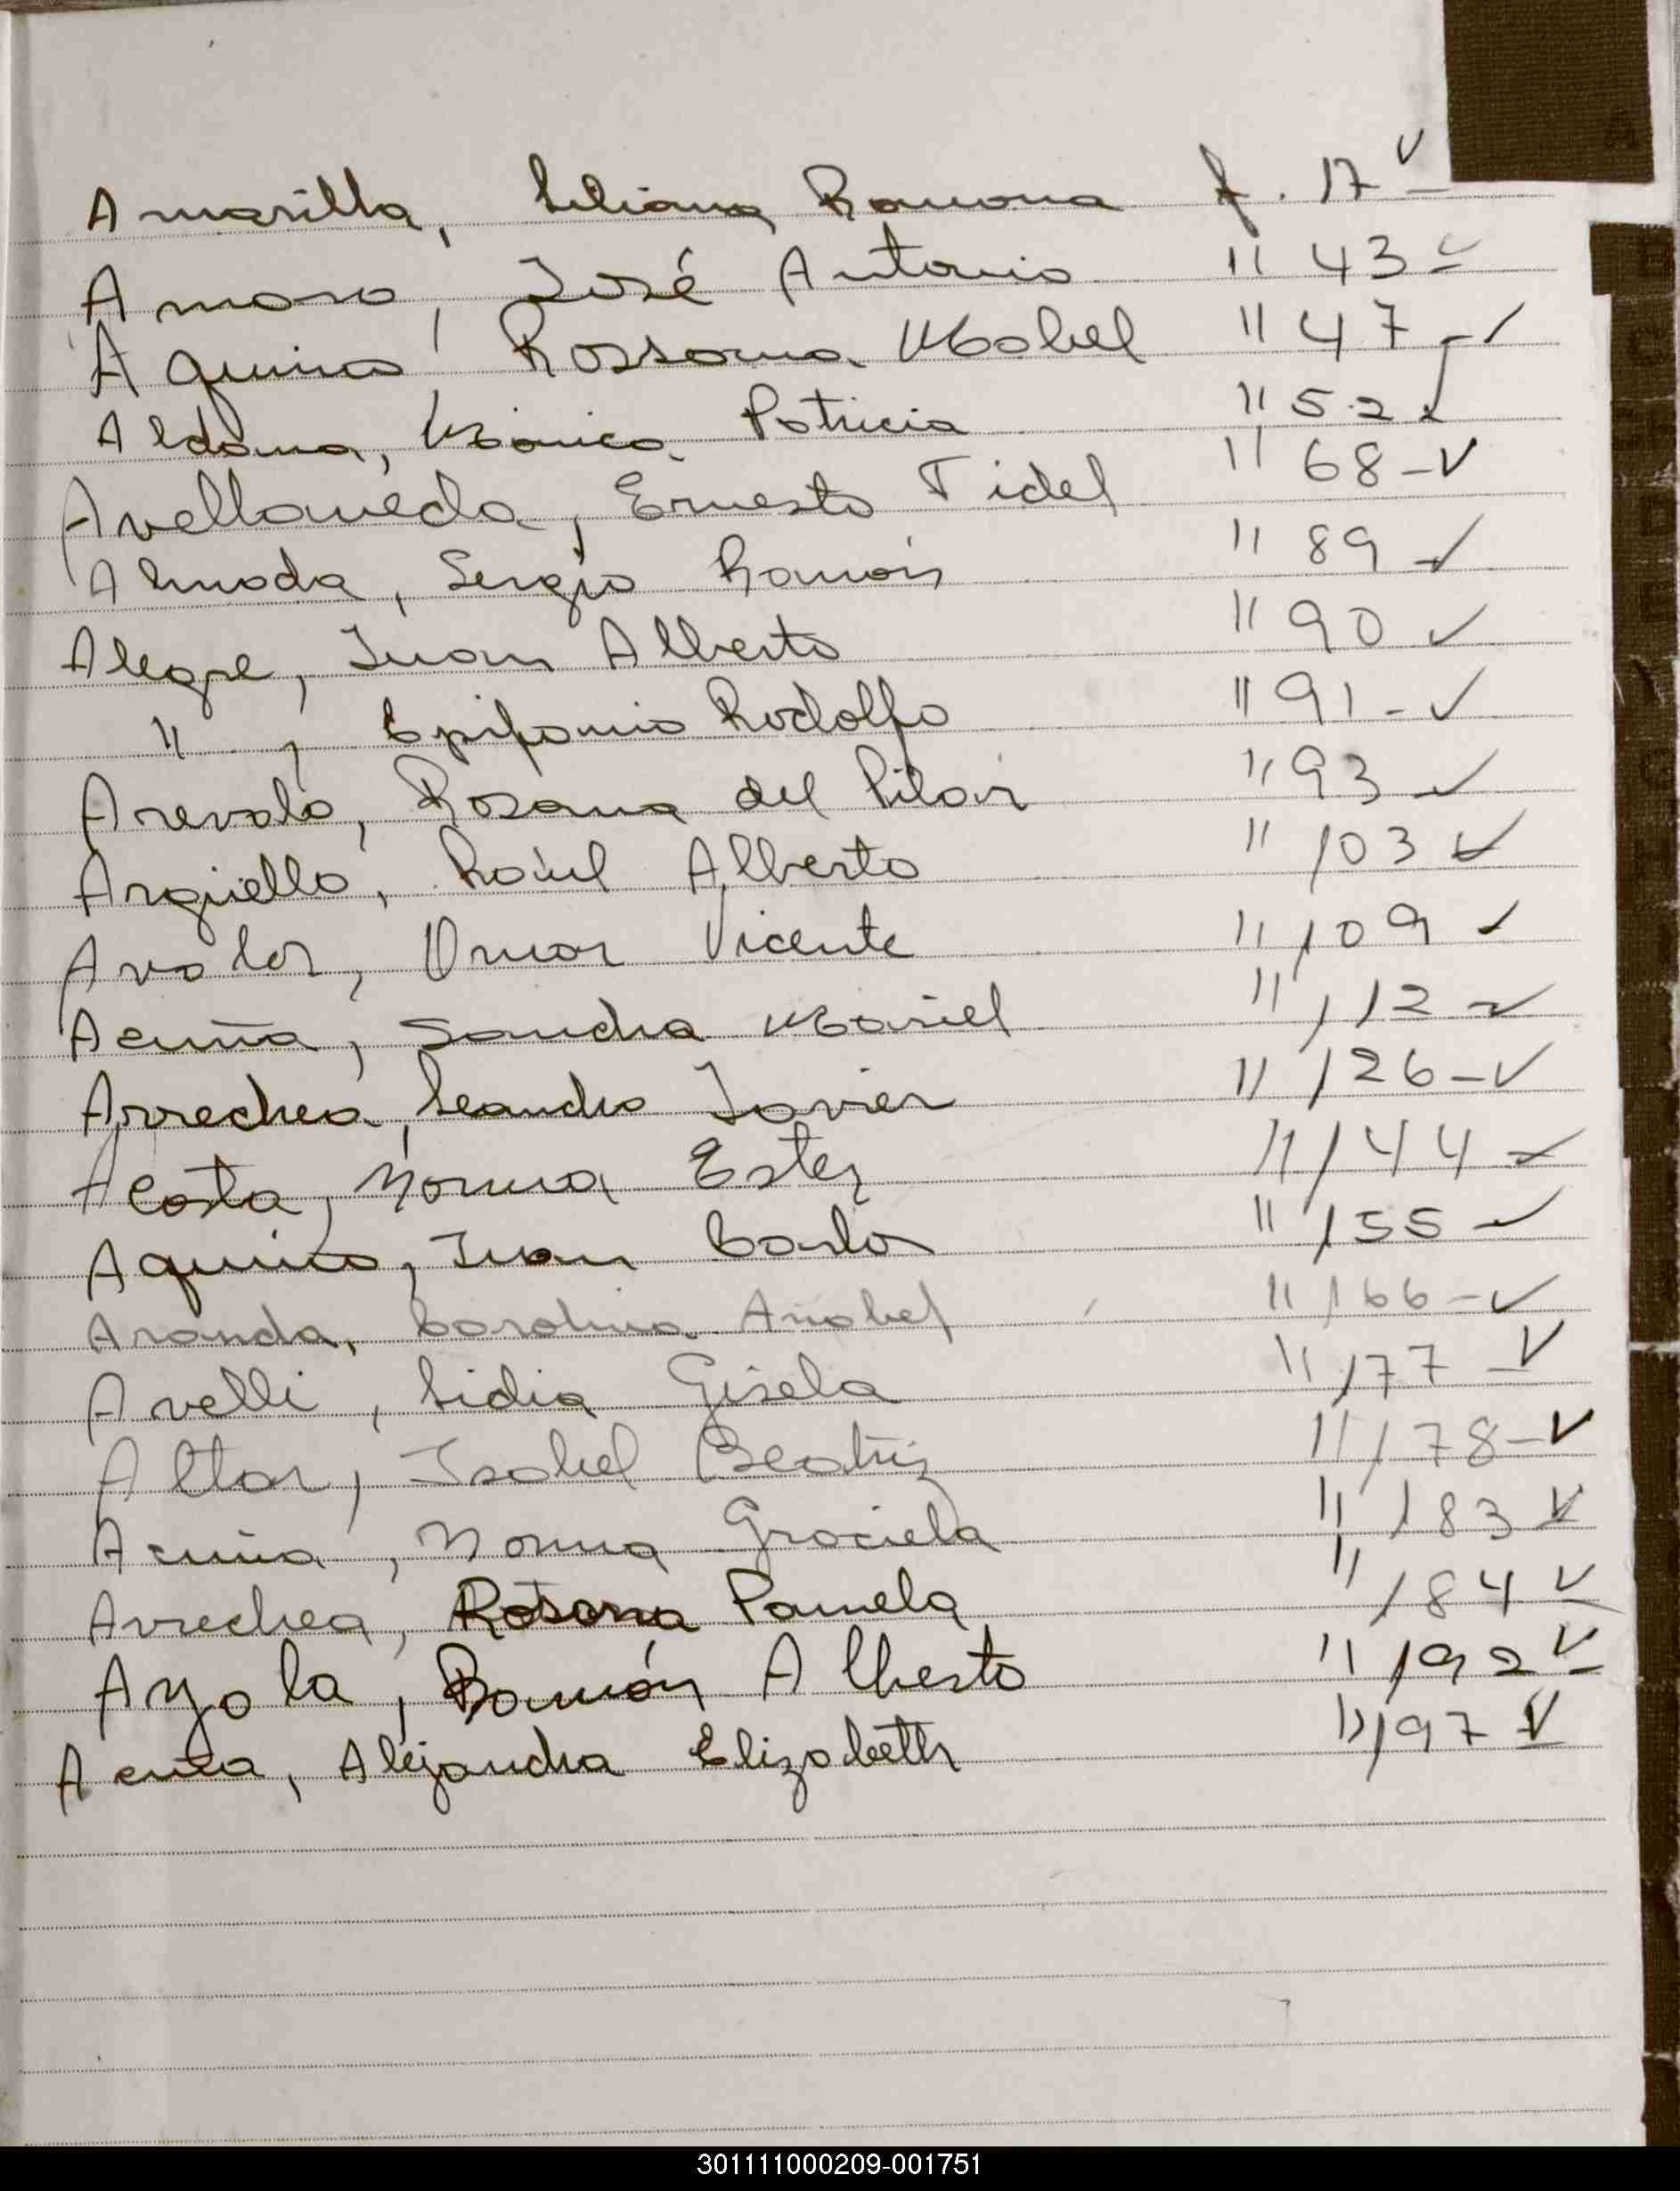 Amarilla, Liliana Ramona f. 17 ✓
Amaro, José Antonio " 43 ✓
Aquino, Rossana Mabel " 47 - ✓
Aldama, Mónica Patricia " 52 ✓
Avellaneda, Ernesto Fidel " 68 - ✓
Almada, Sergio Ramón " 89 ✓
Alegre, Juan Alberto " 90 ✓
" , Epifanio Rodolfo " 91 - ✓
Arevalo, Rosana del Pilar " 93 ✓
Argüello, Raúl Alberto " 103 ✓
Avalos, Omar Vicente " 109 ✓
Acuña, Sandra Mariel " 112 ✓
Arrechea, Leandro Javier " 126 - ✓
Acosta, Norma Ester " 144 ✓
Aquino, Juan Carlos " 155 ✓
Aranda, Carolina Anabel " 166 - ✓
Avelli, Lidia Gisela " 177 ✓
Altar, Isabel Beatriz " 178 - ✓
Acuña, Norma Graciela " 183 ✓
Arrechea, Rosana Pamela " 184 ✓
Ayala, Ramón Alberto " 192 ✓
Acuña, Alejandra Elizabeth " 197 ✓
301111000209-001751